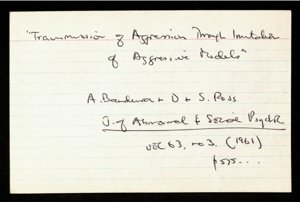 "Transmission of Aggression Through Imitation
of Aggressive Models"
A. Bandura & D & S. Ross
J. of Abnormal & Social Psychol
vol 63, no 3. (1961)
p575...